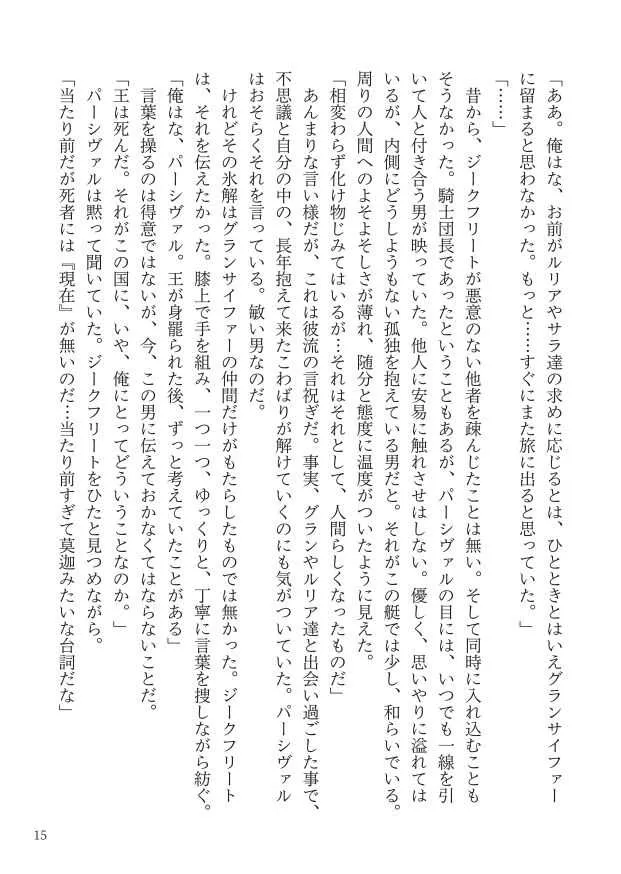 「ああ。俺はな、お前がルリアやサラ達の求めに応じるとは、ひとときとはいえグランサイファー
に留まると思わなかった。もっと……すぐにまた旅に出ると思っていた。」
「……」
昔から、ジークフリートが悪意のない他者を疎んじたことは無い。そして同時に入れ込むことも
そうなかった。騎士団長であったということもあるが、パーシヴァルの目には、いつでも一線を引
いて人と付き合う男が映っていた。他人に安易に触れさせはしない。優しく、思いやりに溢れては
いるが、内側にどうしようもない孤独を抱えている男だと。それがこの艇では少し、和らいでいる。
周りの人間へのよそよそしさが薄れ、随分と態度に温度がついたように見えた。
「相変わらず化け物じみてはいるが…それはそれとして、人間らしくなったものだ」
あんまりな言い様だが、これは彼流の言祝ぎだ。事実、グランやルリア達と出会い過ごした事で、
不思議と自分の中の、長年抱えて来たこわばりが解けていくのにも気がついていた。パーシヴァル
はおそらくそれを言っている。敏い男なのだ。
けれどその氷解はグランサイファーの仲間だけがもたらしたものでは無かった。ジークフリート
は、それを伝えたかった。膝上で手を組み、一つ一つ、ゆっくりと、丁寧に言葉を捜しながら紡ぐ。
「俺はな、パーシヴァル。王が身罷られた後、ずっと考えていたことがある」
言葉を操るのは得意ではないが、今、この男に伝えておかなくてはならないことだ。
「王は死んだ。それがこの国に、いや、俺にとってどういうことなのか。」
パーシヴァルは黙って聞いていた。ジークフリートをひたと見つめながら。
「当たり前だが死者には『現在』が無いのだ…当たり前すぎて莫迦みたいな台詞だな」
15